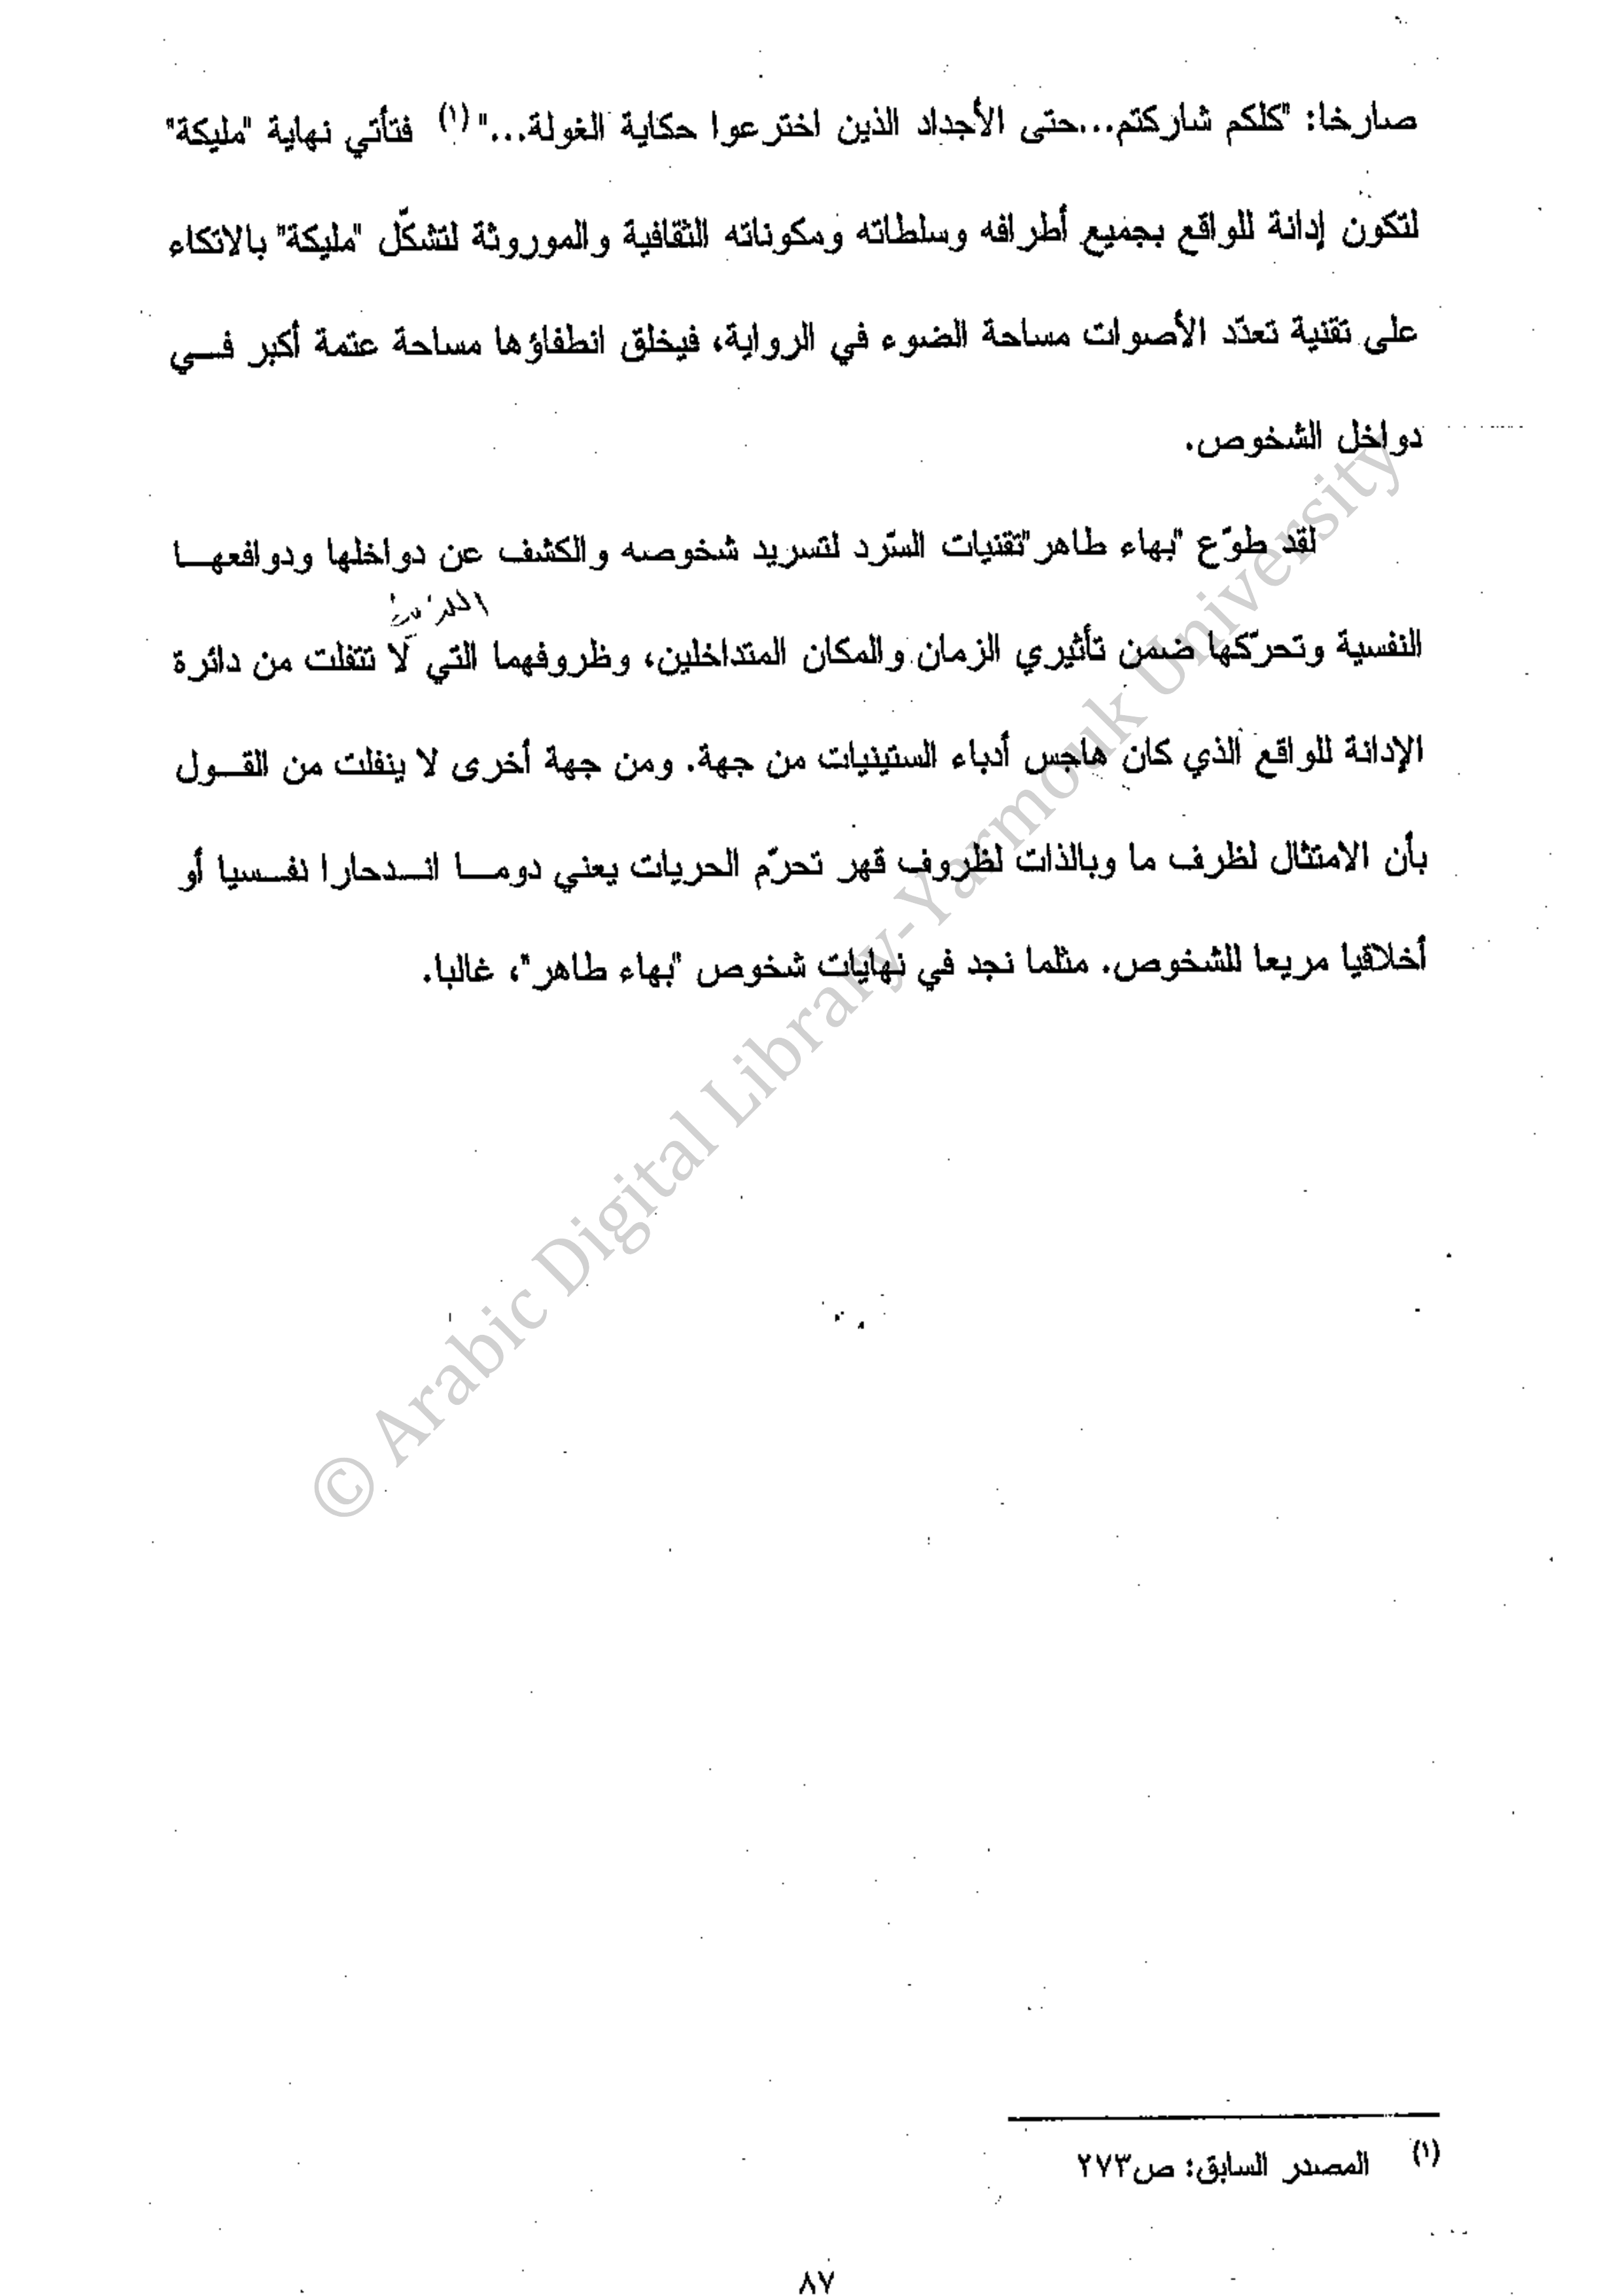 صارخا: "كلكم شاركتم...حتى الأجداد الذين اخترعوا حكاية الغولة..."(١) فتأتي نهاية "مليكة"
لتكون إدانة للواقع بجميع أطرافه وسلطاته ومكوناته الثقافية والموروثة لتشكّل "مليكة" بالاتكاء
على تقنية تعدّد الأصوات مساحة الضوء في الرواية، فيخلق انطفاؤها مساحة عتمة أكبر فـــي
دواخل الشخوص.
لقد طوّع "بهاء طاهر"تقنيات السّرد لتسريد شخوصه والكشف عن دواخلها ودوافعهـــا
النفسية وتحرّكها ضمن تأثيري الزمان والمكان المتداخلين، وظروفهما التي لا تتفلت من دائرة
الإدانة للواقع الذي كان هاجس أدباء الستينيات من جهة. ومن جهة أخرى لا ينفلت من القـــول
بأن الامتثال لظرف ما وبالذات لظروف قهر تحرّم الحريات يعني دومـــا انـــدحارا نفـــسيا أو
أخلاقيا مريعا للشخوص. مثلما نجد في نهايات شخوص "بهاء طاهر"، غالبا.
© Arabic Digital Library-Yarmouk University
(١) المصدر السابق: ص٢٧٣
٨٧